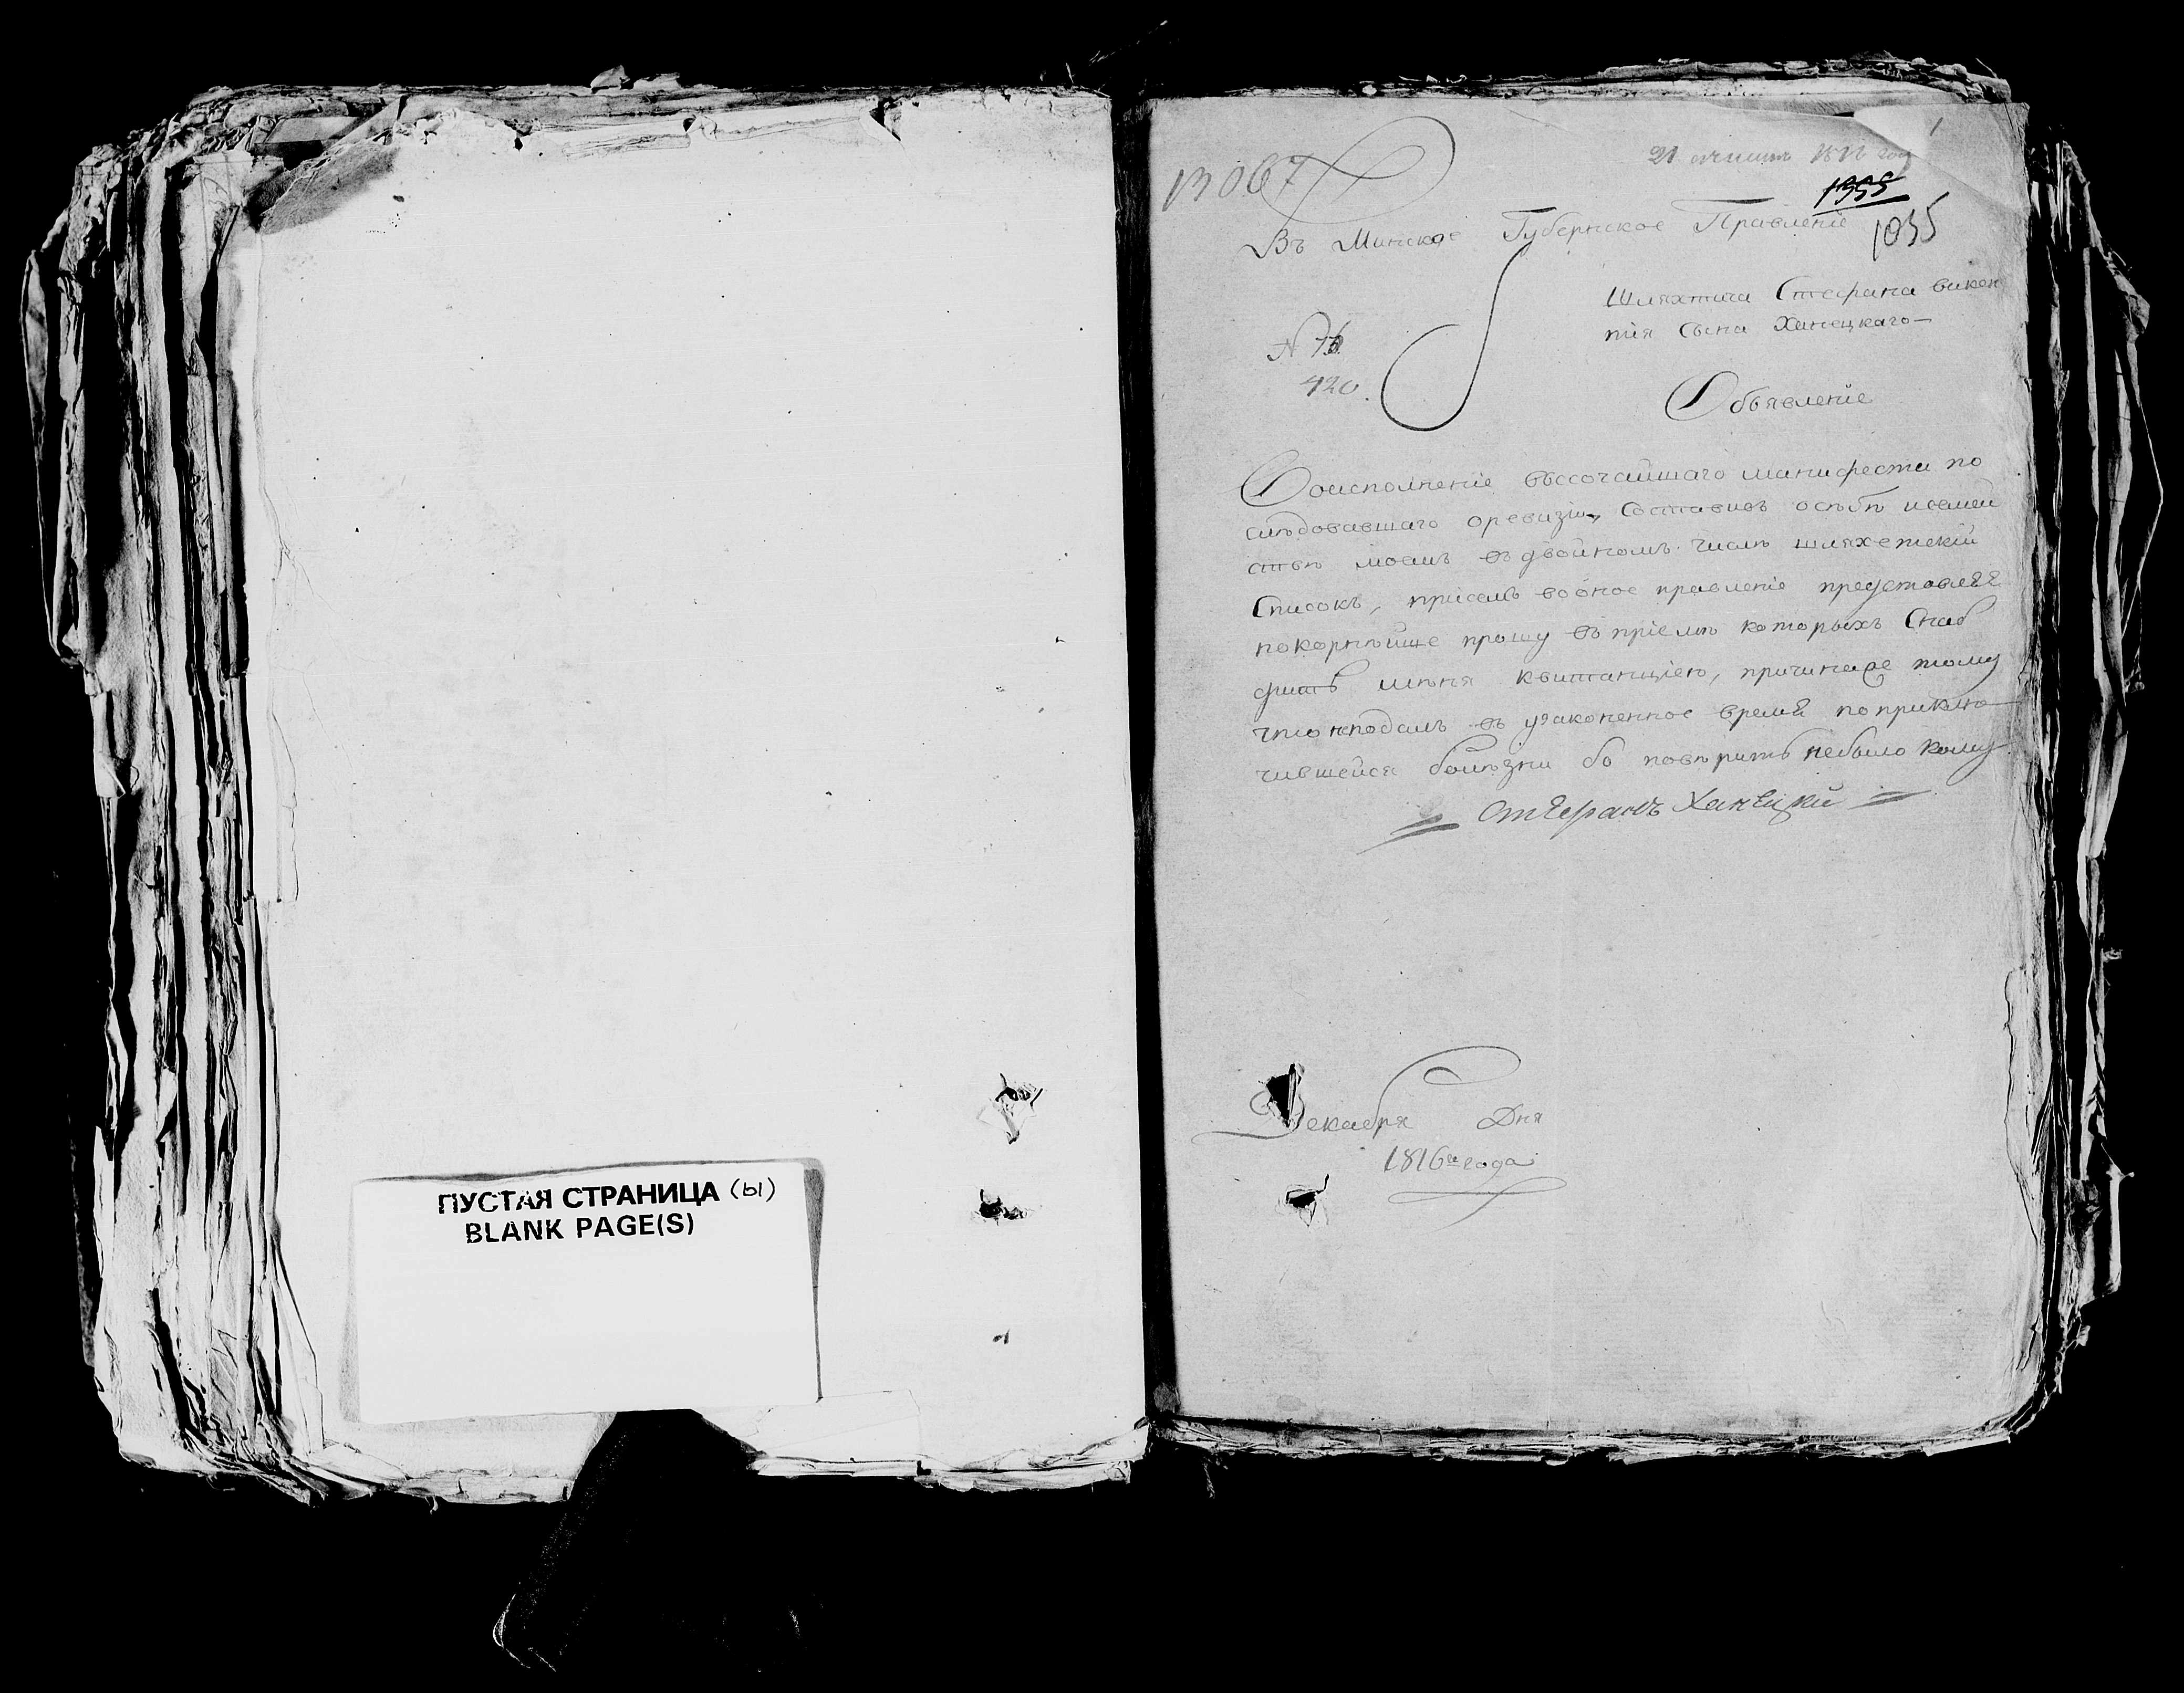 ПУСТАЯ СТРАНИЦА (ы)
BLANK PAGE(S)
13067
21
1355
1035
Въ Минское Губернское Правленіе
Шляхтича Стефана викен
тія Сына Ханецкаго —
N 76
420.
Объявленіе
Воисполненіе высочайшаго манифеста по
слѣдовавшаго оревизіи, Составивъ осѣбѣ исемей
ствѣ моемъ въ двойномъ числѣ шляхетскій
Списокъ, присемъ воôное правленіе представляя
покорнѣйще прошу въ пріемѣ которыхъ Снаб
дить мѣня квитанціею, причинаже тому
что неподалъ въ узаконенное время поприклю
чившейся болѣзни бо повѣрить небыло кому
Стефанъ Ханецкий
Декабря Дня
1816го года